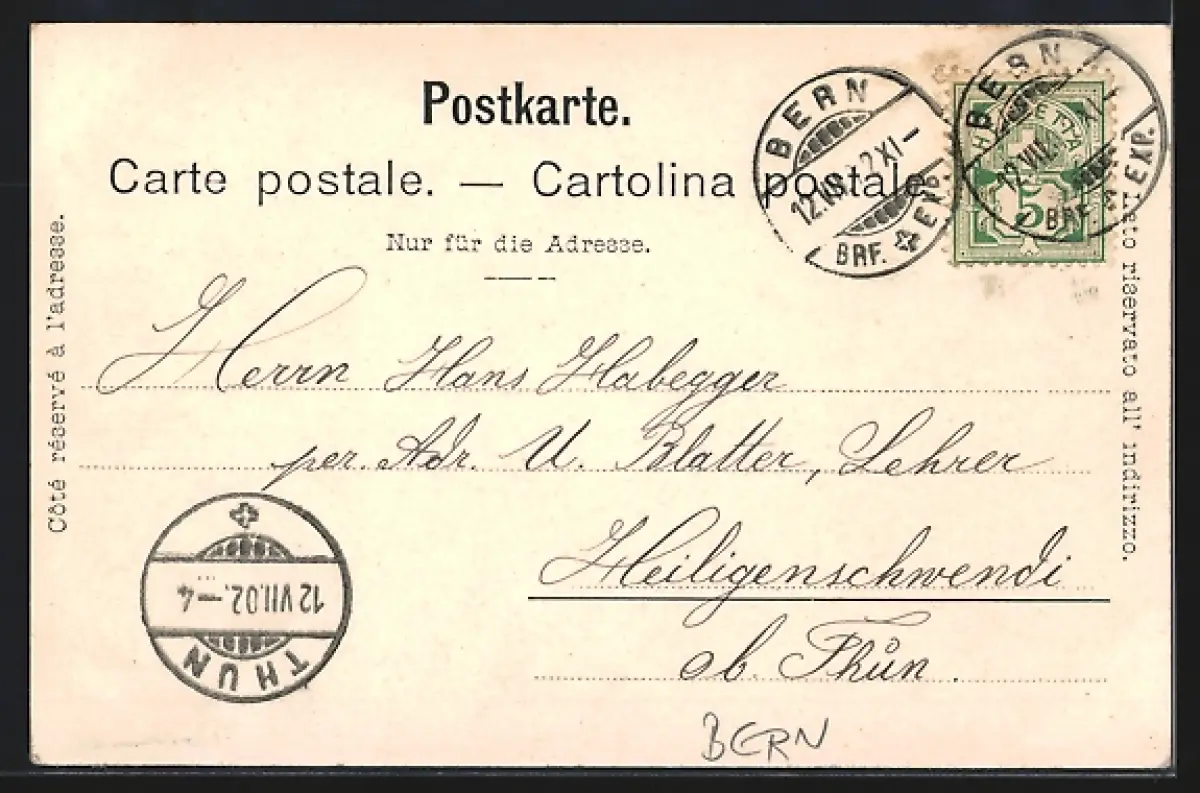 Postkarte.
Carte postale. — Cartolina postale.
Nur für die Adresse.
Côté réservé à l'adresse.
Lato riservato all' indirizzo.
BERN
12.VII.02 XI–
BRF. EXP.
BERN
12.VII. XI–
BRF. EXP.
HELVETIA
5
Herrn Hans Habegger
per. Adr. U. Blatter, Lehrer
Heiligenschwendi
ob. Thun.
THUN
12.VII.02.–4
BERN